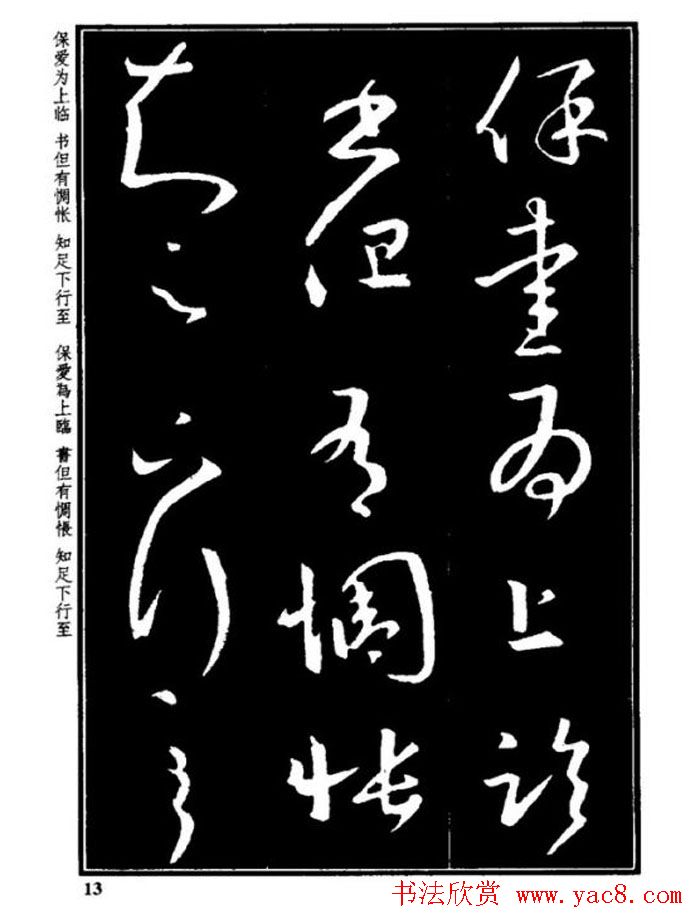 保爱为上临
书但有惆怅
知足下行至
保愛為上臨
書但有惆悵
知足下行至
保愛為上臨
書但有惆悵
知足下行至
13
书法欣赏 www.yac8.com